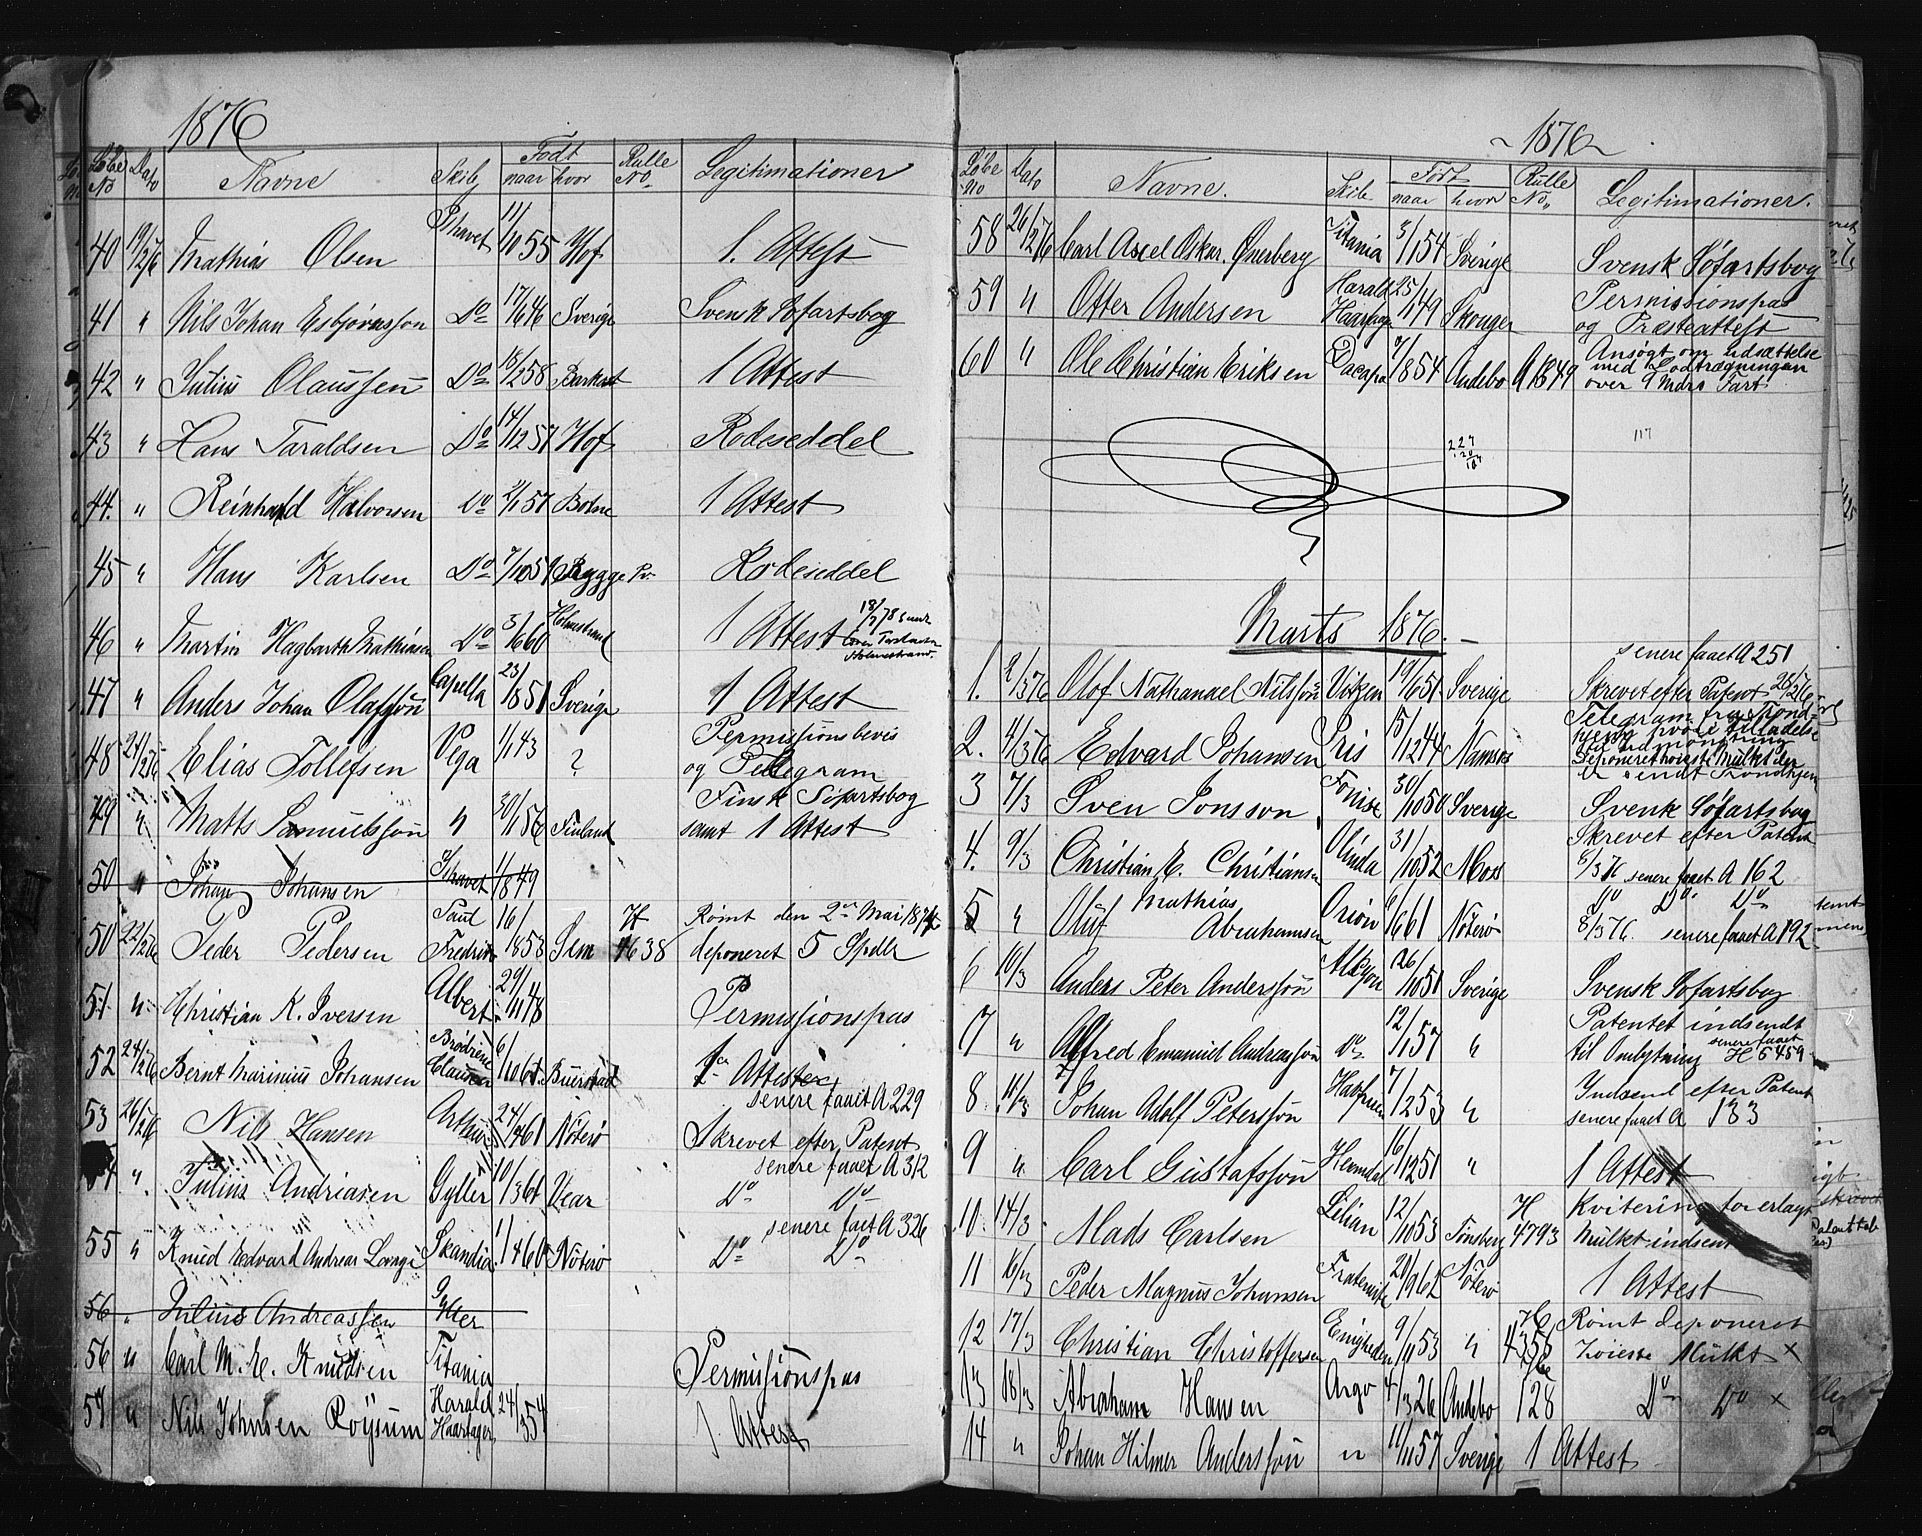 1876
Løbe No Dato Navne Skib Født naar hvor Rulle No. Legitimationer
40 19/2 76 Mathias Olsen Ishavet 11/10 55 Hof 1. Attest
41 " Nils Johan Esbjörnsson Do 17/6 46 Sverige Svensk Søfartsbog
42 " Julius Olaussen Do 18/2 58 1 Attest
43 " Hans Taraldsen Do 14/12 57 Hof Rodeseddel
44. " Reinhard Halvorsen Do 2/1 57 Botne 1 Attest
45 " Hans Karlsen Do 7/10 51 Rygge Rodeseddel
46 " Martin Hagbarth Mathiasen Do 3/6 60 Holmestrand 1 Attest 18/7 78 sendt
Holmestrand.
47 " Anders Johan Olafssön Capella 23/8 51 Sverige 1 Attest
48 24/2 76 Elias Tollefsen Vega 1/1 43 ? Permissionsbevis
og Telegram
49 " Matts Samuelssön " 30/1 56 Finland Finsk Søfartsbog
samt 1 Attest
50 " Johan Johansen Ishavet 1/8 49
50 22/2 76 Peder Pedersen Paul Fredrik 16/1 853 Sem H 4638 Rømt den 2den Mai 1874
deponeret 5 Spdlr
51 " Christian K. Iversen Albert 29/11 48 Permissionspas
52 24/2 76 Bernt Marinius Johansen Brødrene Clausen 6/10 61. Buerstad 1 Attest
senere faaet A 229
53 26/2 76 Nils Hansen Arthur 24/4 61 Nöterö Skrevet efter Patent
senere faaet A 312
54 ". Julius Andriasen Gyller 10/3 61 Vear Do Do
senere faaet A 326
55 " Knud Edvard Andreas Lange Skandia 1/4 60 Nöterö Do Do
56 " Julius Andreassen Gyller
56 " Carl M. E. Knudsen Titania Permissionspas
57 " Nils Johnsen Röysum Harald Haarfager 24/3 54 1 Attest
1876
Løbe No Dato Navne. Skib Født naar hvor Rulle No. Legitimationer.
58 26/2 76 Carl Axel Oskar. Ønerberg Titania 3/1 54 Sverige Svensk Søfartsbog
59 " Otter Andersen Harald Haarfager 25/1 49 Skouger Permissionspas
og Præsteattest
60 " Ole Christian Eriksen Dacapo 9/8 54 Andebo A 1349 Ansøgt om udsættelse
med Lodtrægningen
over 9 Mdrs Fart
227
120
107
117
Marts 1876.
senere faaet A 251
1. 2/3 76 Olof Nathanael Nilssön Vikken 19/6 51 Sverige Skrevet efter Patent 28/2 76
2. 4/3 76 Edvard Johansen Iris 5/12 44 Namsos Telegram fra Trond-
hjem hvori tilladelse
til udmønstring
Deponeret høieste Mulkt der
er sendt Trondhjem
3 7/3 Sven Jonsson Fönise 30/10 50 Sverige Svensk Søfartsbog
4. 9/3 Christian E. Christiansen Olinda 31/10 52 Moss Skrevet efter Patent
8/3 76 senere faaet A 162
5 " Oluf Mathias Abrahamsen Orion 6/6 61 Nöterö Do Do Do
8/3 76. senere faaet A 192
6 10/3 Anders Peter Anderssön Alcyon 26/10 51 Sverige Svensk Søfartsbog
7 " Alfred Emanuel Andreassön Do 12/1 57 " Patentet indsendt
til Ombytning senere faaet H 5459
8 11/3 Johan Adolf Peterssön Havfruen 7/12 53 " Indsend efter Patent
senere faaet A 133
9 " Carl Gustafssön Heimdal 16/12 51 " 1 Attest
10. 14/3 Mads Carlsen Lilian 12/10 53 Tönsberg H 4793 Kvitering for erlagt
Mulkt indsent
11 16/3 Peder Magnus Johansen Fraternite 29/9 62 Nöterö 1 Attest
12 17/3 Christian Christoffersen Enigheden 9/11 53 " H 4351 Rømt deponeret
høieste Mulkt ×
13 18/3 Abraham Hansen Argo 4/3 26 Andebo 128 Do Do ×
14 " Johan Hilmer Anderssön " 10/11 57 Sverige 1 Attest